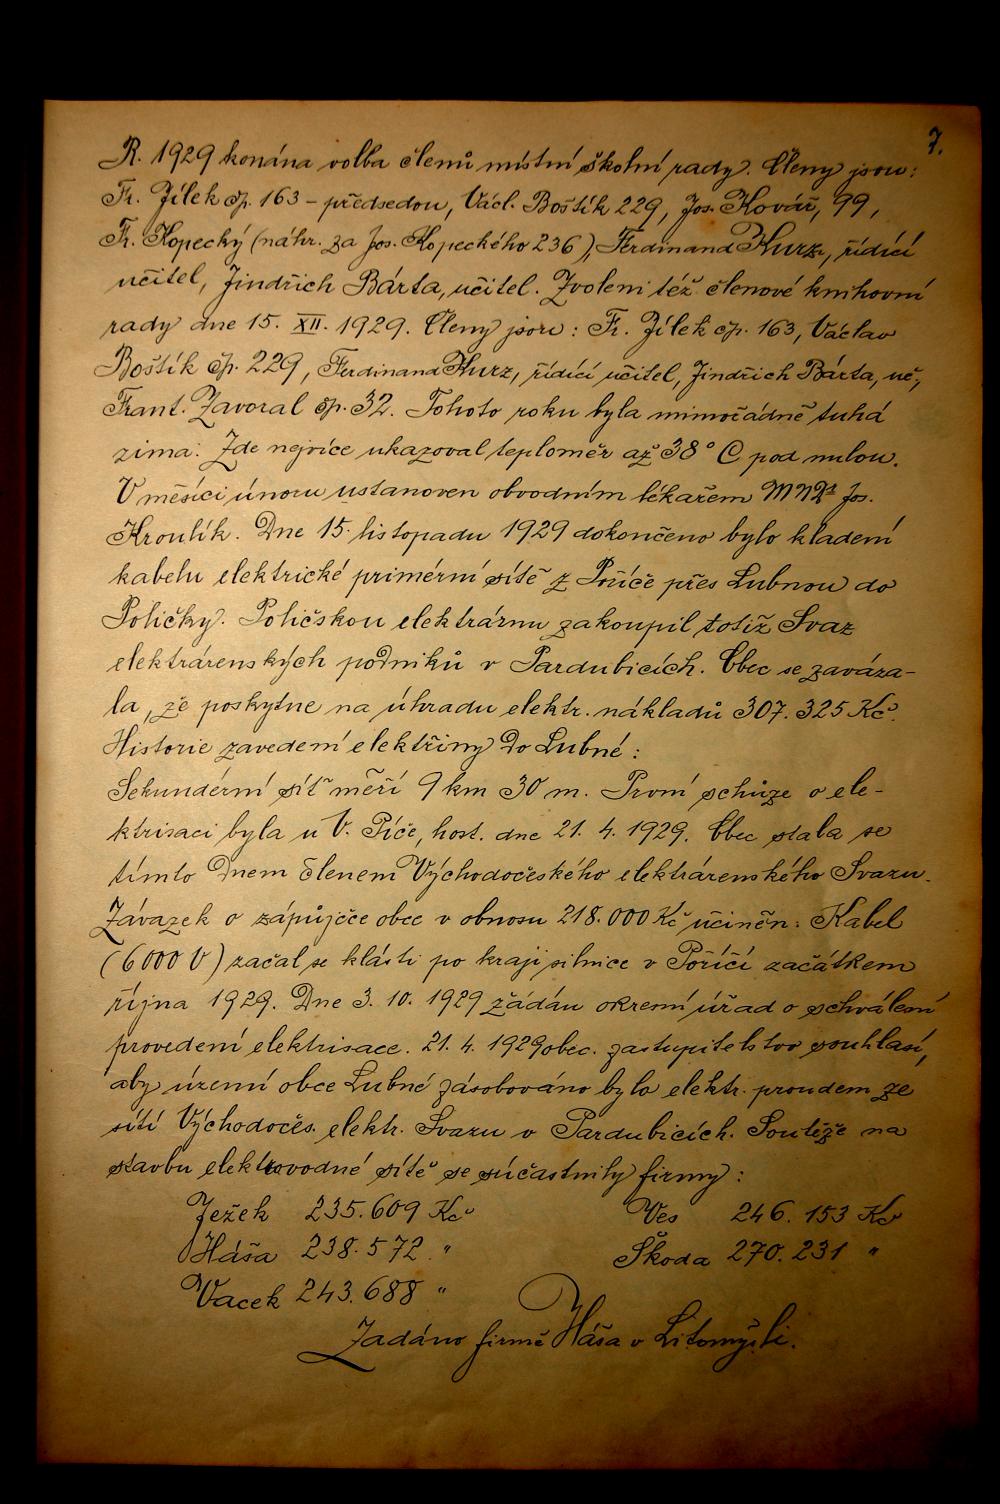 7.
R. 1929 konána volba členů místní školní rady. Členy jsou:
Fr. Jílek čp. 163 – předsedou, Václ. Boštík 229, Jos. Kovář, 99,
Fr. Kopecký (náhr. za Jos. Kopeckého 236), Ferdinand Kurz, řídící
učitel, Jindřich Bárta, učitel. Zvoleni též členové knihovní
rady dne 15. XII. 1929. Členy jsou: Fr. Jílek čp. 163, Václav
Boštík čp. 229, Ferdinand Kurz, řídící učitel, Jindřich Bárta, uč.,
Frant. Zavoral čp. 32. Tohoto roku byla mimořádně tuhá
zima. Zde nejvíce ukazoval teploměr až 38° C pod nulou.
V měsíci únoru ustanoven obvodním lékařem Jos.
Kroulík. Dne 15. listopadu 1929 dokončeno bylo kladení
kabelu elektrické primérní sítě z Poříče přes Lubnou do
Poličky. Poličskou elektrárnu zakoupil totiž Svaz
elektrárenských podniků v Pardubicích. Obec se zaváza-
la, že poskytne na úhradu elektr. nákladů 307.325 Kč.
Historie zavedení elektřiny do Lubné:
Sekundérní síť měří 9 km 30 m. První schůze o ele-
ktrisaci byla u V. Píče, host. dne 21. 4. 1929. Obec stala se
tímto dnem členem Východočeského elektrárenského Svazu.
Závazek o zápůjčce obce v obnosu 218.000 Kč učiněn. Kabel
(6000 V) začal se klásti po kraji silnice v Poříčí začátkem
října 1929. Dne 3. 10. 1929 žádán okresní úřad o schválení
provedení elektrisace. 21. 4. 1929 obec. zastupitelstvo souhlasí,
aby území obce Lubné zásobováno bylo elektr. proudem ze
sítí Východočes. elektr. Svazu v Pardubicích. Soutěže na
stavbu elektrovodné sítě se súčastnily firmy:
Ježek 235.609 Kč Ves 246.153 Kč
Háša 238.572 " Škoda 270.231 "
Vacek 243.688 "
Zadáno firmě Háša v Litomyšli.